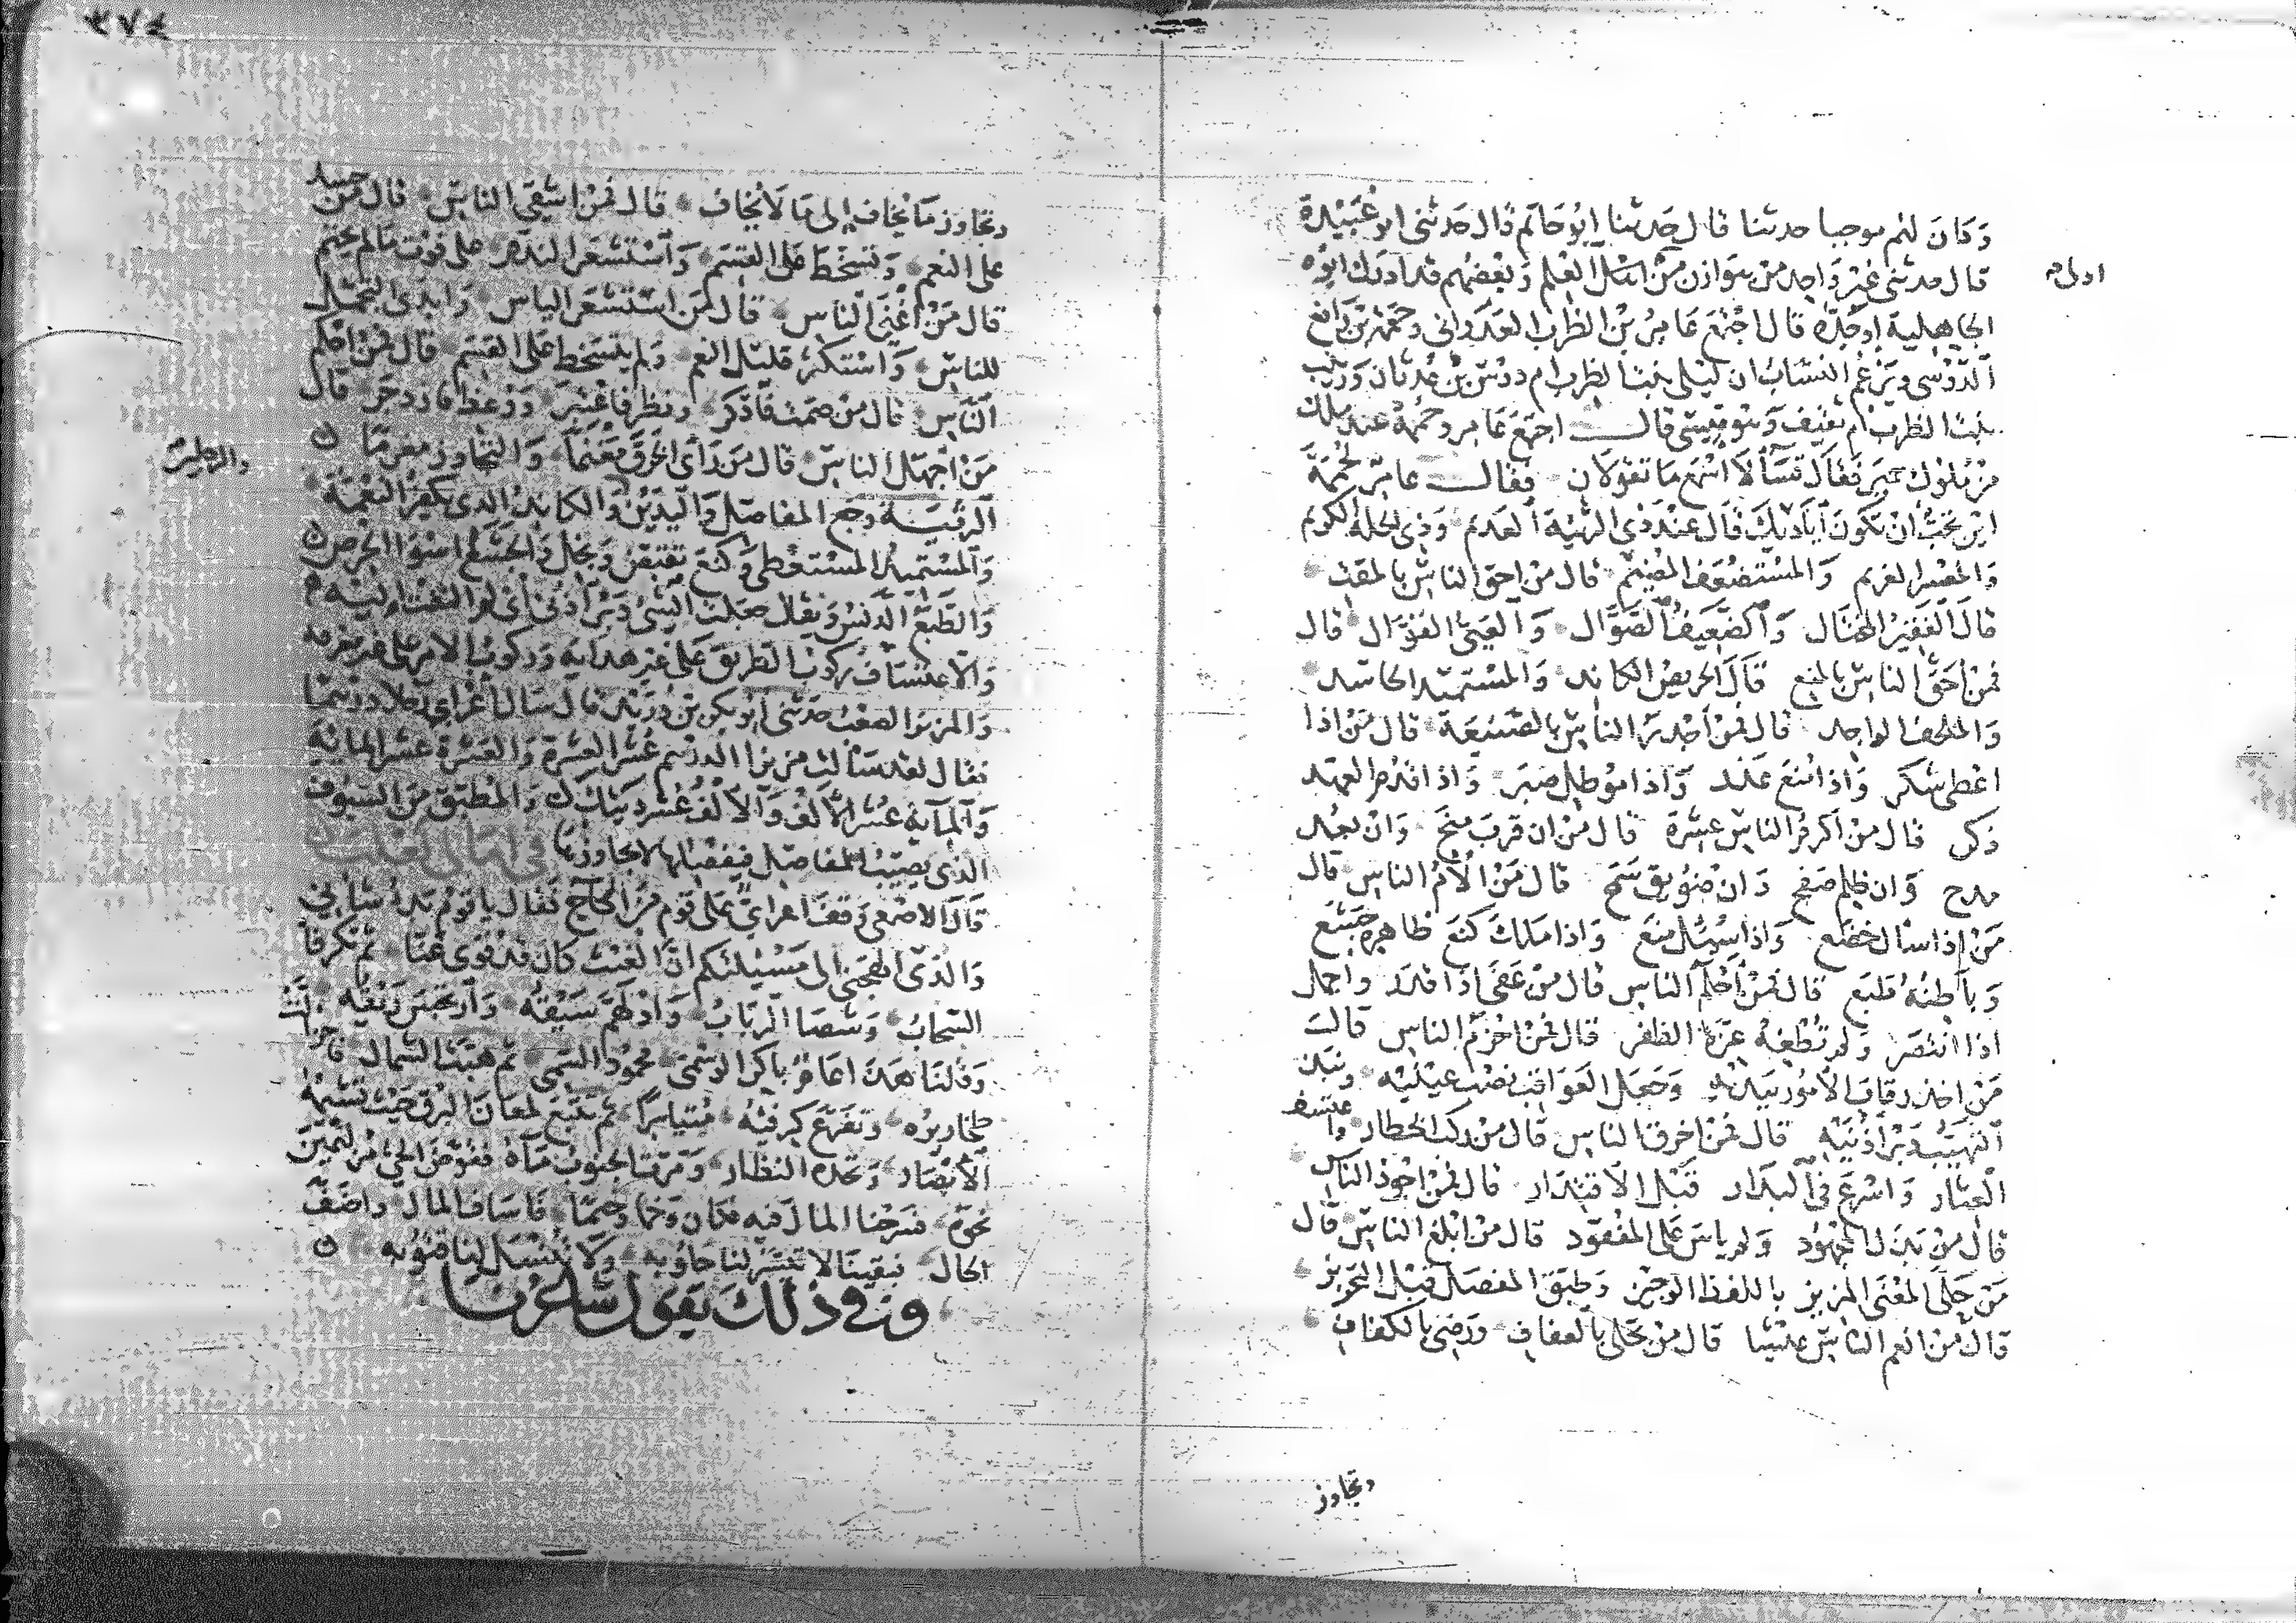 وكان لهم موجبا حدثنا قال حدثنا ابو حاتم قال حدثني ابو عبيدة
قال حدثني غير واحد من هوازن من اهل العلم وبعضهم قد ادرك ابوه
اولى
الجاهلية او جده قال اجتمع عامر بن الظرب العدواني وحممة بن رافع
الدوسي ويزعم النساب ان ليلى بنت الظرب ام دوس بن عدثان وزينب
بنت الظرب ام ثقيف وهو قسي قال اجتمع عامر وحممة عند ملك
من ملوك حمير فقال تسألا اسمع ما تقولان فقال عامر لحممة
اين تحب ان تكون اياديك قال عند ذي الرثية العديم وذي الخلة الكريم
والمعسر الغريم والمستضعف الهضيم قال من احق الناس بالمقت
قال الفقير المختال والضعيف الصوال والعيي القوال قال
فمن احق الناس بالمنع قال الحريص الكاند والمستميد الحاسد
والملحف الواجد قال فمن اجدر الناس بالصنيعة قال من اذا
اعطي شكر واذا منع عذر واذا موطل صبر واذا قدم العهد
ذكر قال من اكرم الناس عشرة قال من ان قرب منح وان بعد
مدح وان ظلم صفح وان ضويق سمح قال من الأم الناس قال
من اذا سال خضع واذا سئل منع واذا ملك كنع ظاهره جشع
وباطنه طبع قال فمن احلم الناس قال من عفى اذا قدر واجمل
اذا انتصر ولم تطغه عزة الظفر قال فمن احزم الناس قال
من اخذ رقاب الامور بيديه وجعل العواقب نصب عينيه ونبذ
التهيب دبر اذنيه قال فمن اخرق الناس قال من ركب الخطار واعتسف
العثار واسرع في البدار قبل الاقتدار قال فمن اجود الناس
قال من بذل المجهود ولم ياس على المفقود قال من ابلغ الناس قال
من جلى المعنى المزيز باللفظ الوجيز وطبق المفصل قبل التحزيز
قال من انعم الناس عيشا قال من تحلى بالعفاف ورضي بالكفاف
وتجاوز
وتجاوز ما يخاف الى ما لا يخاف قال فمن اشقى الناس قال من حسد
على النعم وتسخط على القسم واستشعر الندم على فوت مالم يحتم
قال من اغنى الناس قال من استشعر الياس وابدى التجمل
للناس واستكثر قليل النعم ولم يتسخط على القسم قال فمن احكم
الناس قال من صمت فاذكر ونظر فاعتبر ووعظ فازدجر قال
من اجهل الناس قال من راى الخرق مغنما والتجاوز مغرما
الرثية وجع المفاصل واليدين والكاند الذي يكفر النعمة
والرجلين
والمستميد المستعطي وكنع تقبض وبخل والجشع اسوا الحرص
والطبع الدنس ويقال جعلت الشئ دبر اذني اي لم التفت اليه
والاعتساف ركوب الطريق على غير هداية وركوب الامر على غير معرفة
والمزيز الصعب حدثني ابو بكر بن دريد قال سال اعرابي رجلا درهما
فقال لقد سالت مزيزا الدرهم عشر العشرة والعشرة عشر المائة
والمائة عشر الالف والالف عشر ديتك والمطبق من السيوف
الذي يصيب المفاصل فيفصلها لا يجاوزها
قال الاصمعي وقف اعرابي على قوم من الحاج فقال يا قوم بدء شاني
والذي الفجني الى مسئلتكم ان الغيث كان قد قوى عنا ثم تكرفا
السحاب وشصا الرباب وادلهم سيقه وارتجس ريقه
وقلنا هذا عام باكر الوسمي محمود السمي ثم هبت الشمال فاحزالت
طخاريره وتقزع كرفئه متياسرا ثم تتبع لمعان البرق حيث تشيمه
الابصار وتحده النظار ومرت الجنوب ماه فقوض الحي مزلئمين
نحوه فسرحنا المال فيه فكان وخما وخما فاساف المال واضف
الحال فبقينا لا تيسر لنا حلوبة ولا تنسل لنا قتوبة
وفي ذلك يقول شاعرنا